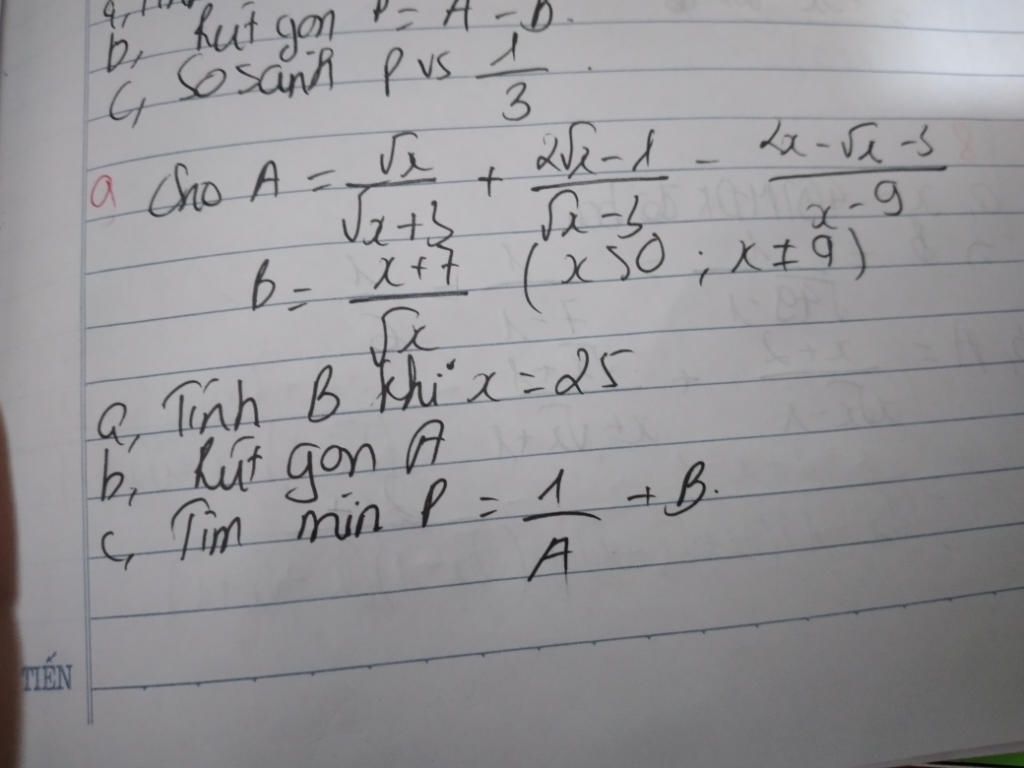 b, Rút gọn P = A - B.
c, So sánh P vs 1/3.
a Cho A = √x/(√x+3) + (2√x-1)/(√x-3) - (2x-√x-3)/(x-9)
B = (x+7)/√x (x>0; x≠9)
a, Tính B khi x = 25
b, Rút gọn A
c, Tìm min P = 1/A + B.
TIẾN